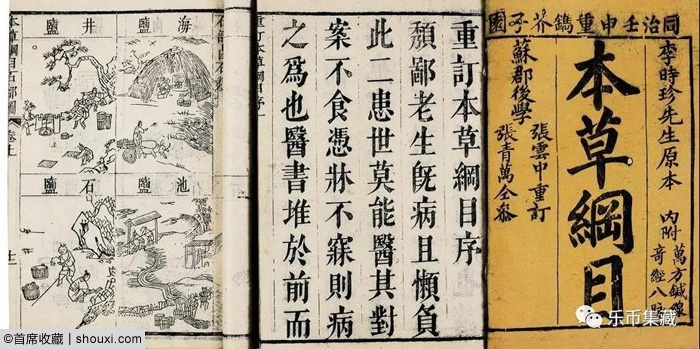 同治壬申重鐫芥子園
李時珍先生原本
内附萬方鍼線
奇經八脉
本草綱目
張雲中重訂
張青萬仝參
蘇郡後學
重訂本草綱目序
頹鄙老生既病且懶負
此二患世莫能醫其對
案不食憑牀不寐則病
之爲也醫書堆於前而
重訂本草綱目序
海鹽
井鹽
池鹽
石鹽
本草綱目石部圖
卷上
乐币集藏
©首席收藏 | shouxi.com